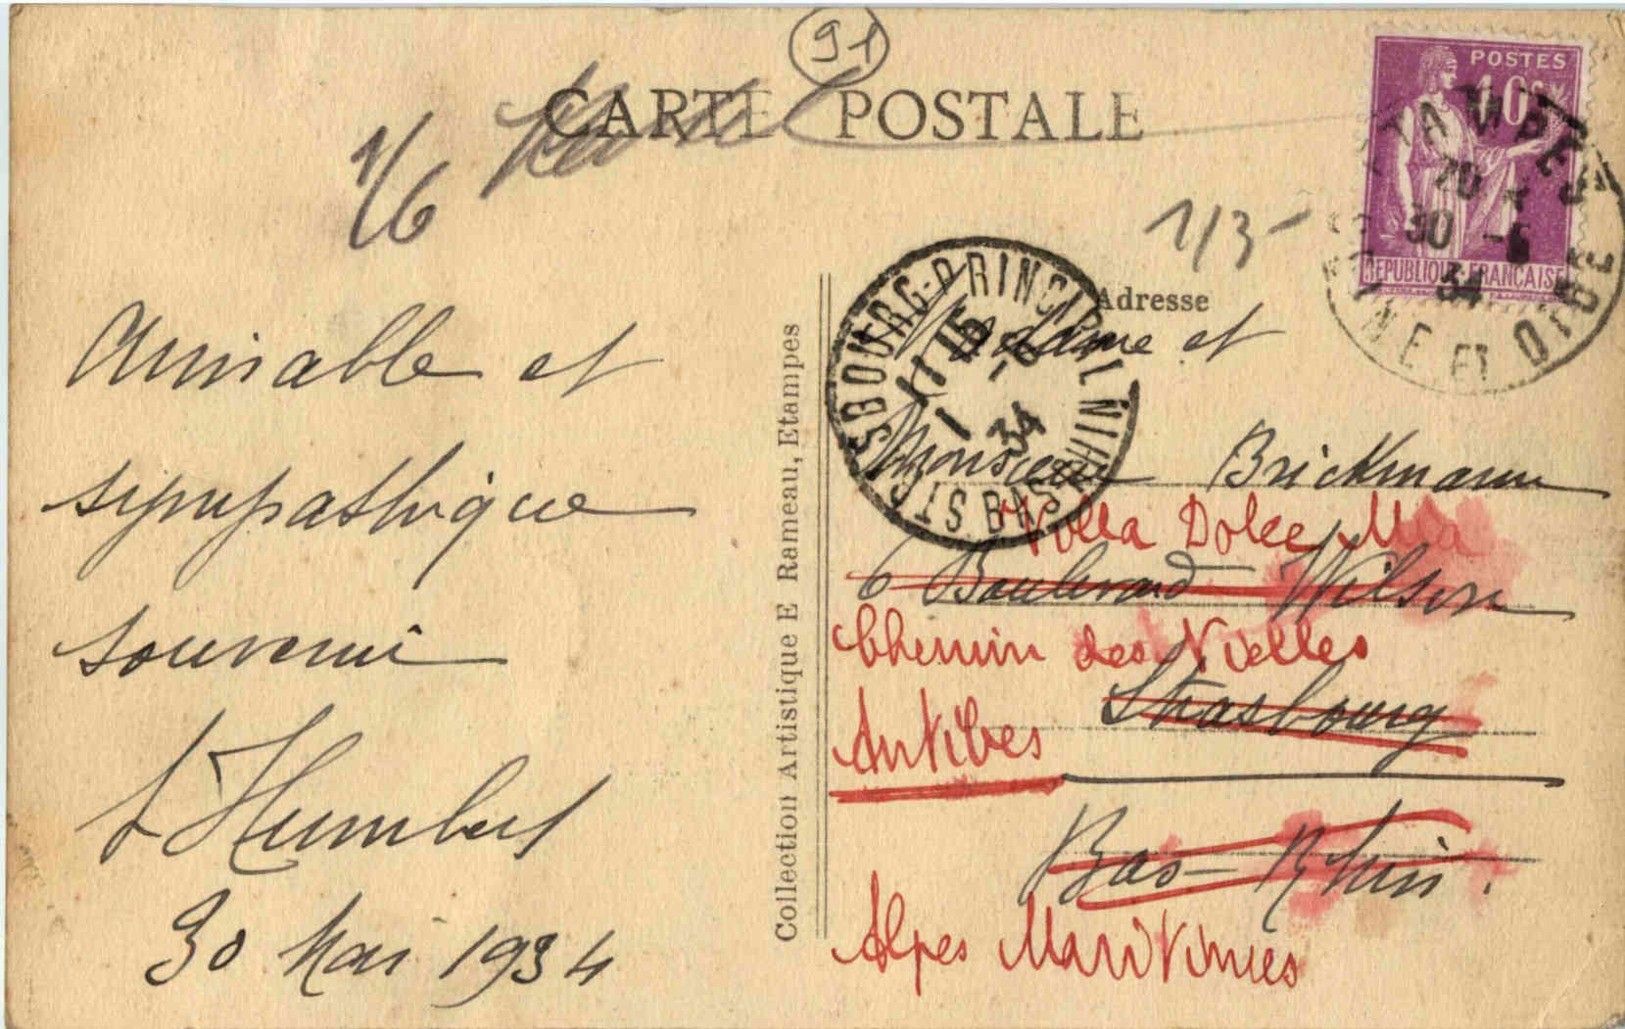 91
CARTE POSTALE
1/6
1/3-
POSTES
40c
REPUBLIQUE FRANÇAISE
ETAMPES
30 -5
34
SEINE ET OISE
STRASBOURG-PRINCIPAL
1 -6
34
BAS RHIN
Aimable et
sympathique
souvenir
Humbert
30 Mai 1934
Collection Artistique E Rameau, Etampes
Adresse
Madame et
Monsieur Brickmann
Villa Dolce Mia
6 Boulevard Wilson
Chemin des Nielles
Strasbourg
Antibes
Bas-Rhin.
Alpes Maritimes